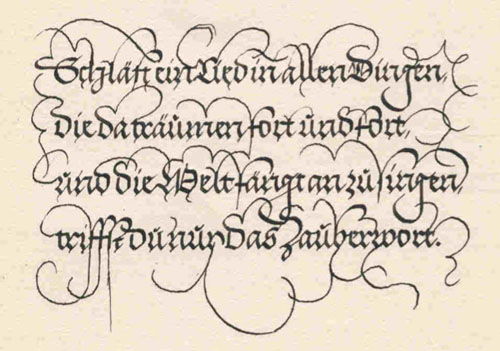 Schläft ein Lied in allen Dingen,
die da träumen fort und fort,
und die Welt fängt an zu singen,
triffst du nur das Zauberwort.